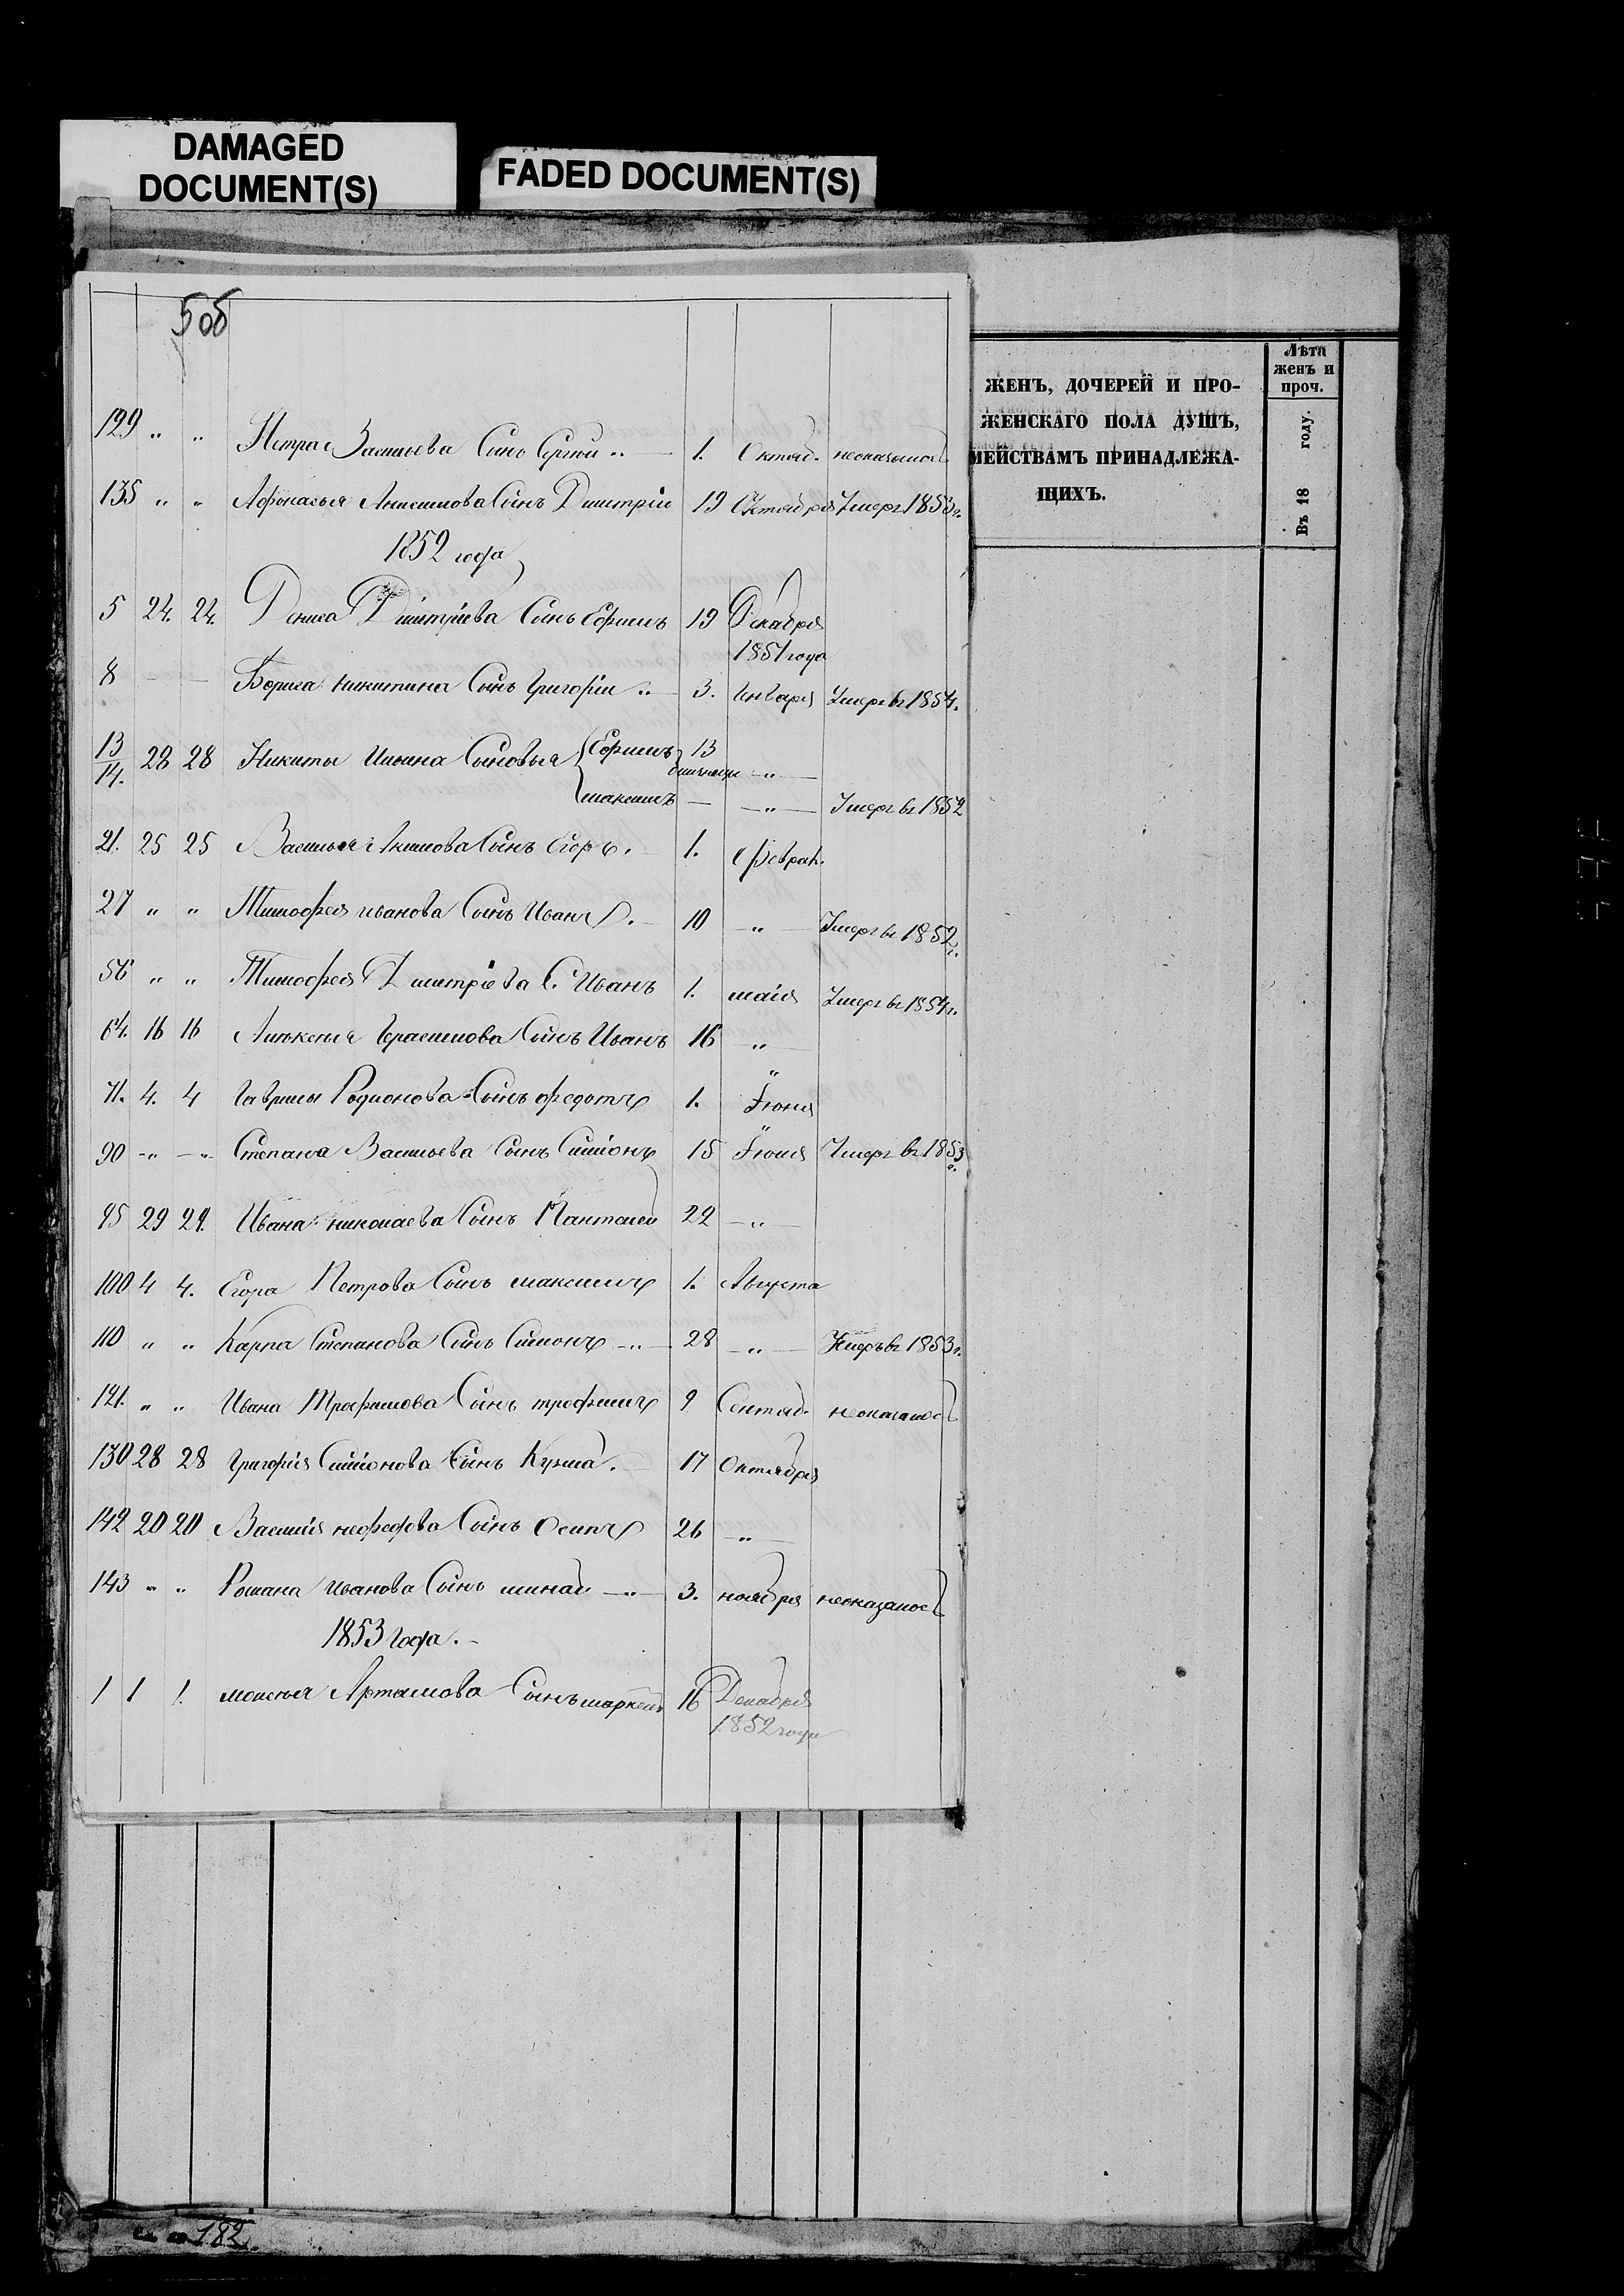 DAMAGED
DOCUMENT(S)
FADED DOCUMENT(S)
508
ЖЕНЪ, ДОЧЕРЕЙ И ПРО-
ЖЕНСКАГО ПОЛА ДУШЪ,
МЕЙСТВАМЪ ПРИНАДЛЕЖА-
ЩИХЪ.
Лѣта
женъ и
проч.
Въ 18 году.
129 " " Петра Васильева Сынъ Сергей 1. Октяб. неоказалось
135 " " Афонасья Анисимова Сынъ Дмитрій 19 Октября Умеръ 1853 г.
1852 года
5 24. 24. Дениса Дмитріева Сынъ Ефимъ 19 Декабря
1851 года
8 Бориса Никитина Сынъ Григорій 3. Января Умеръ въ 1854.
13/14. 28 28 Никиты Ильина Сыновья Ефимъ 13 близнецы "
максимъ " Умеръ въ 1852
21. 25 25 Василья Акимова Сынъ Егоръ. 1. Феврал.
27 " " Тимофея иванова Сынъ Иванъ. 10 " Умеръ въ 1852 г.
56 " " Тимофея Дмитріева С. Иванъ 1. маія Умеръ въ 1854 г.
64. 16 16 Алексея Герасимова Сынъ Иванъ 16 "
71. 4. 4 Гаврилы Родионова Сынъ федотъ 1. Іюня
90 " " Степана Васильева Сынъ Симіонъ 15 Іюля Умеръ въ 1853 г.
95 29 29. Ивана николаева Сынъ Пантелей 22 "
100 4 4. Егора Петрова Сынъ максимъ 1. Августа
110 " " Карпа Степанова Сынъ Симонъ 28 " Умеръ въ 1853 г.
121. " " Ивана Трофимова Сынъ трофимъ 9 Сентяб. неоказалось
130 28 28 Григорія Симіонова Сынъ Кузма. 17 Октября
142 20 20 Василія нефедова Сынъ Осипъ 26 "
143 " " Романа Иванова Сынъ минай 3. ноября неоказалось
1853 Года.
1 1 1. моисея Артамова Сынъ маркелъ 16 Декабря
1852 года
182.